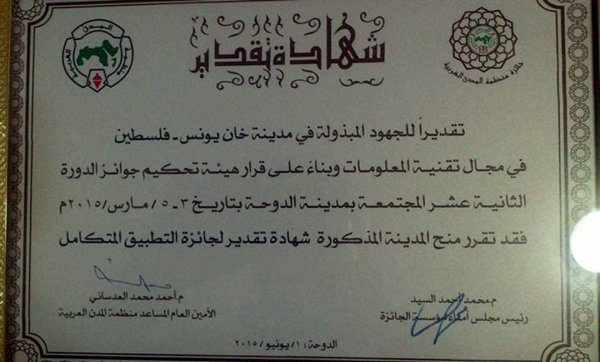 شهادة تقدير
جائزة منظمة المدن العربية
تقديراً للجهود المبذولة في مدينة خان يونس - فلسطين
في مجال تقنية المعلومات وبناءً على قرار هيئة تحكيم جوائز الدورة
الثانية عشر المجتمعة بمدينة الدوحة بتاريخ ٣-٥/مارس/٢٠١٥م
فقد تقرر منح المدينة المذكورة شهادة تقدير لجائزة التطبيق المتكامل
م.محمد أحمد السيد
رئيس مجلس أمناء مؤسسة الجائزة
م.أحمد محمد العدساني
الأمين العام المساعد منظمة المدن العربية
الدوحة: ١/يونيو/٢٠١٥